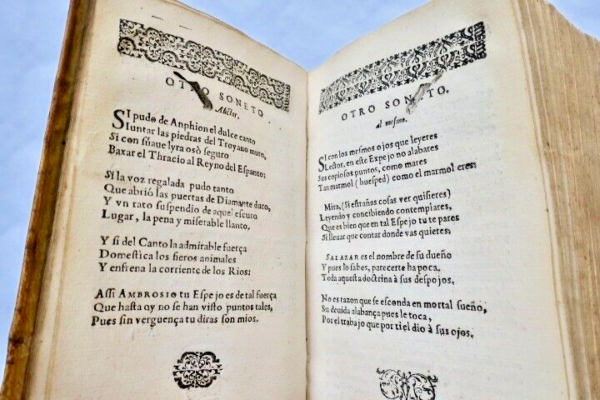 OTRO SONETO
Al
SI pudo de Anphion el dulce canto
Iuntar las piedras del Troyano muro,
Si con suaue lyra osò seguro
Baxar el Thracio al Reyno del Espanto:
Si la voz regalada pudo tanto
Que abrió las puertas de Diamante duro,
Y vn rato suspendio de aquel escuro
Lugar, la pena y miserable llanto.
Y si del Canto la admirable fuerça
Domestica los fieros animales
Y enfrena la corriente de los Rios:
Assi AMBROSIO tu Espejo es de tal fuerça
Que hasta oy no se han visto puntos tales,
Pues sin verguença tu diras son mios.
OTRO SONETO,
al mesmo.
SI con los mesmos ojos que leyeres
Lector, en este Espejo no alabates
Sus copiosos puntos, como mares
Tan marmol (huesped) como el marmol eres:
Mira, (Si estrañas cosas ver quisieres)
Leyendo y concibiendo contemplares,
Que es bien que en tal Espejo tu te pares
Si lleuar que contar donde vas quieres:
SALAZAR es el nombre de su dueño
Y pues lo sabes, parecerte ha poca,
Toda aquesta doctrina à sus despojos,
No es razon que se esconda en mortal sueño,
Su deuida alabança pues le toca,
Por el trabajo que por ti el dio à sus ojos.